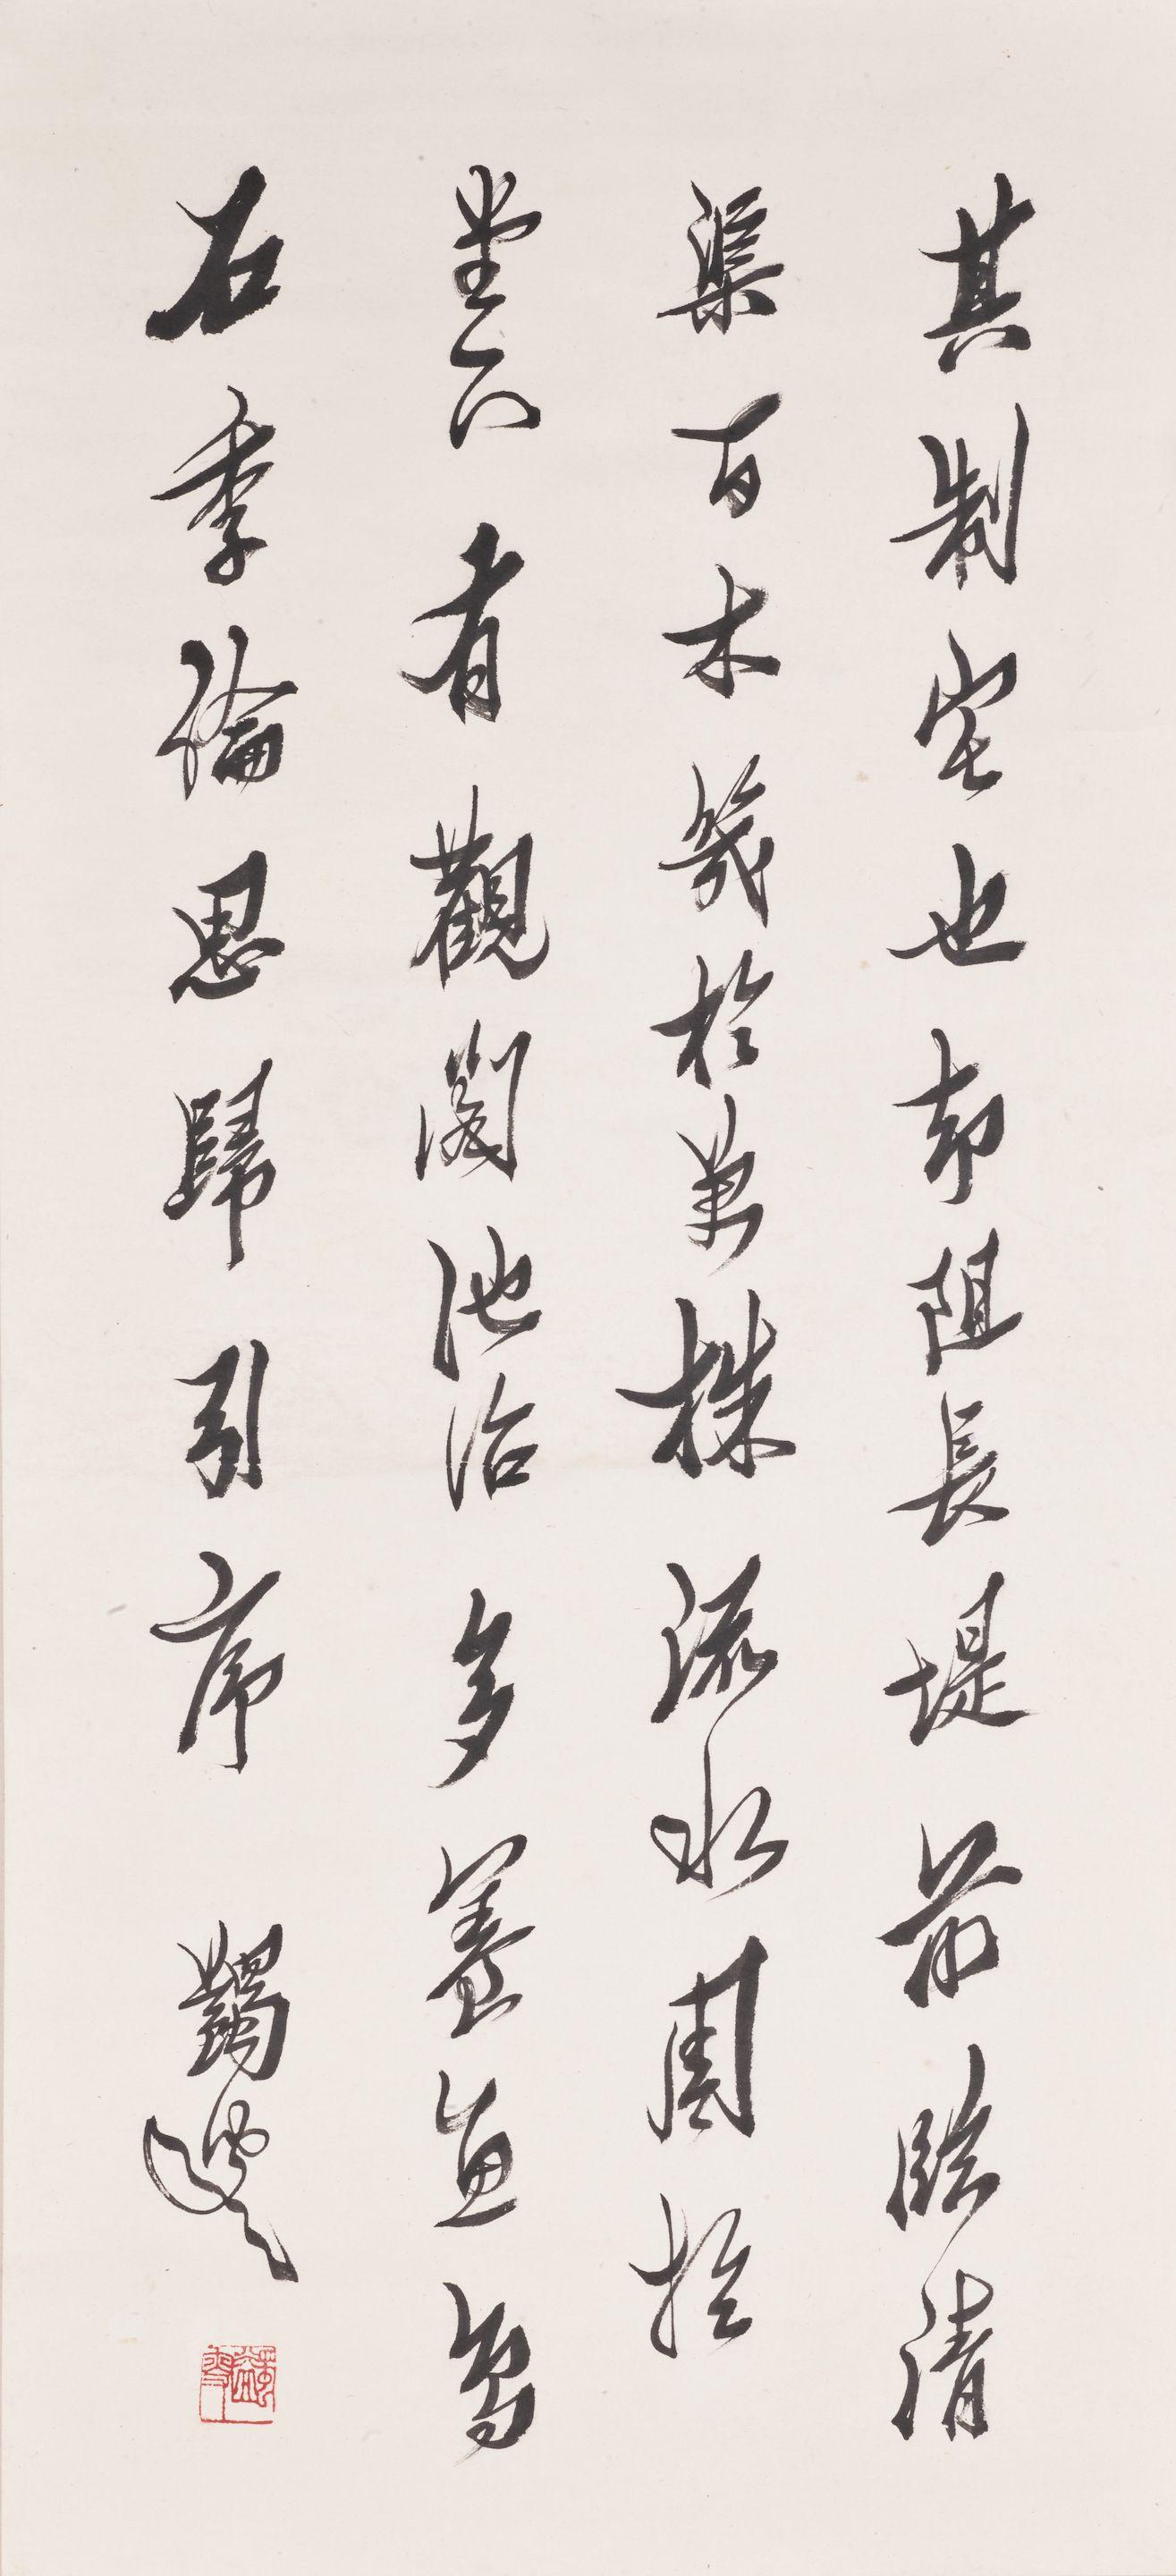 其制宅也却阻長堤前臨清
渠百木幾於萬株流水周於
堂下有觀閣池沼多養魚鳥
石季倫思歸引序 蠲叟
蠲叟